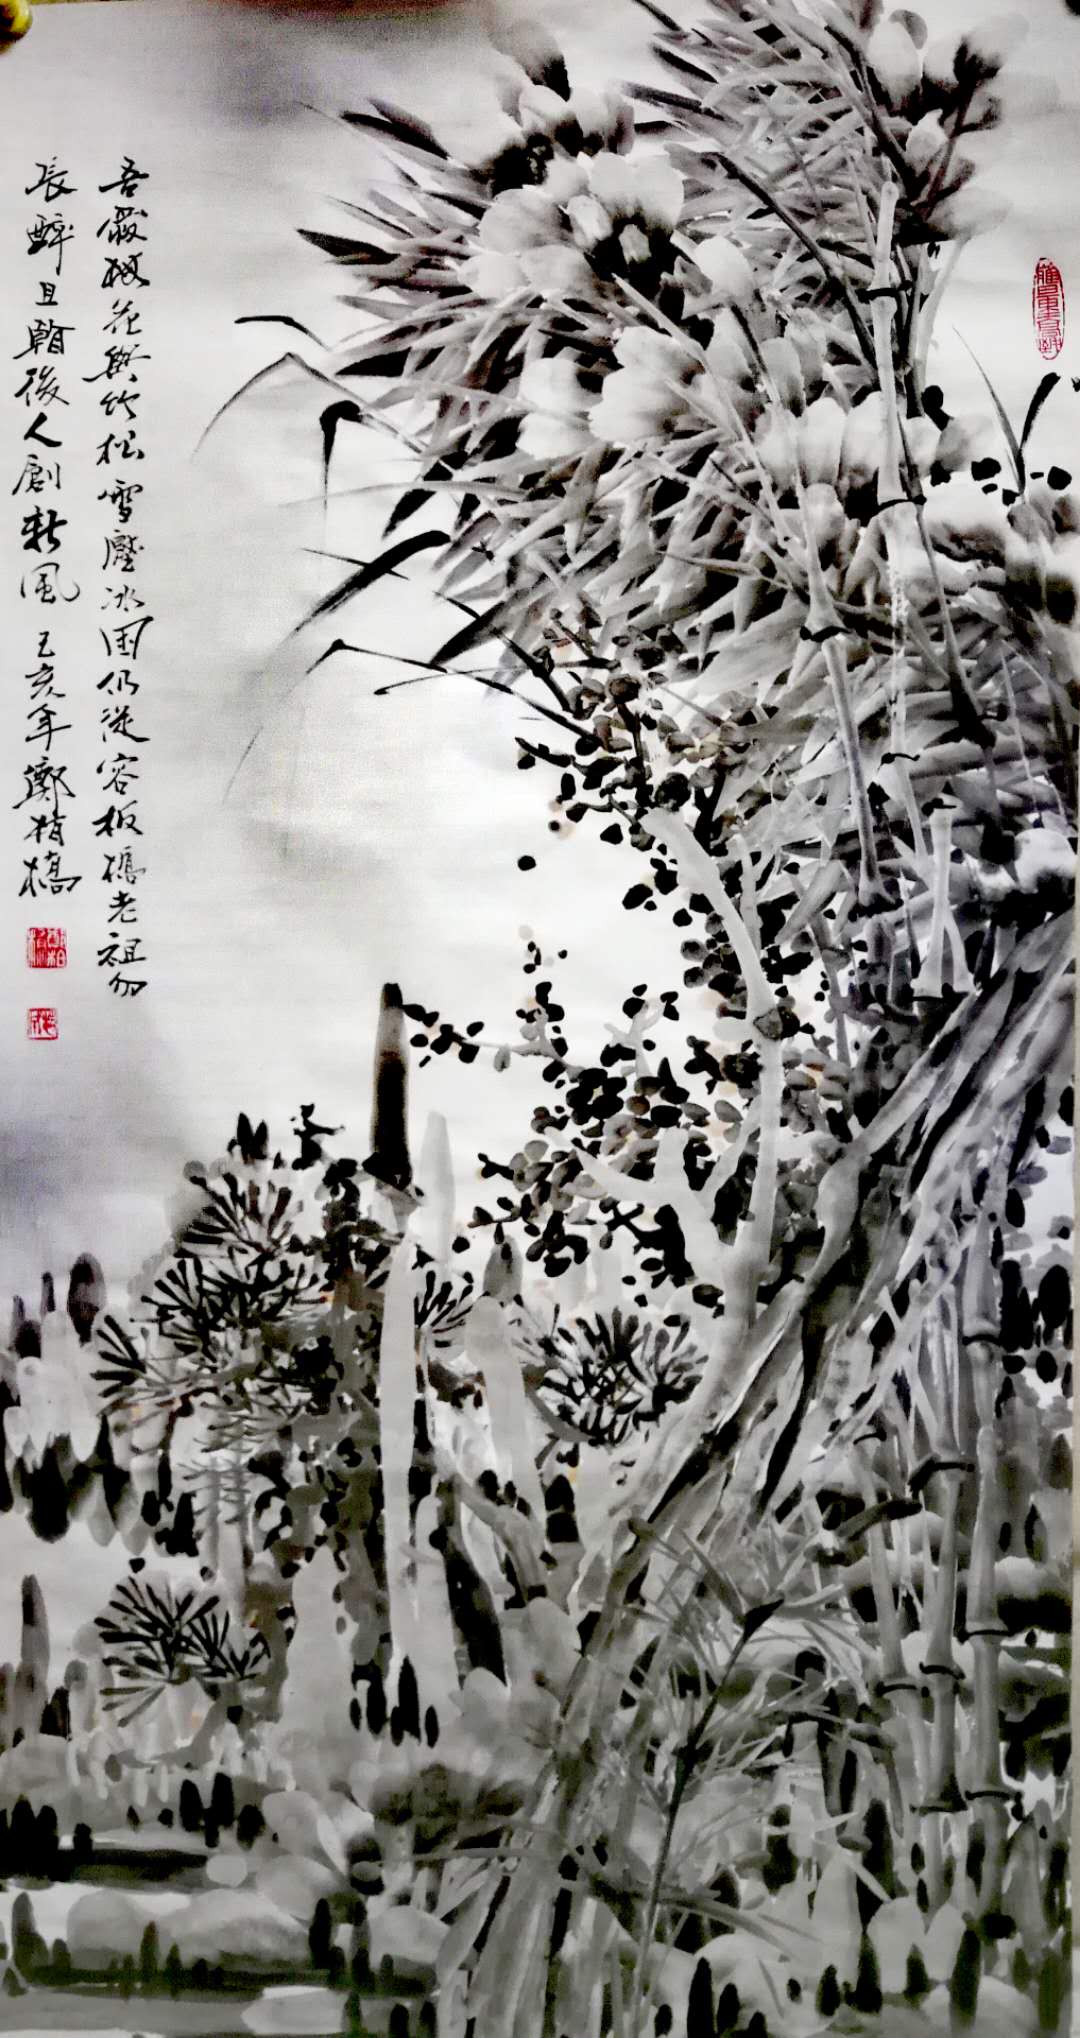 吾敬梅花與竹松雪壓冰困仍從容板橋老祖勿
長醉且看後人創新風 己亥年鄭